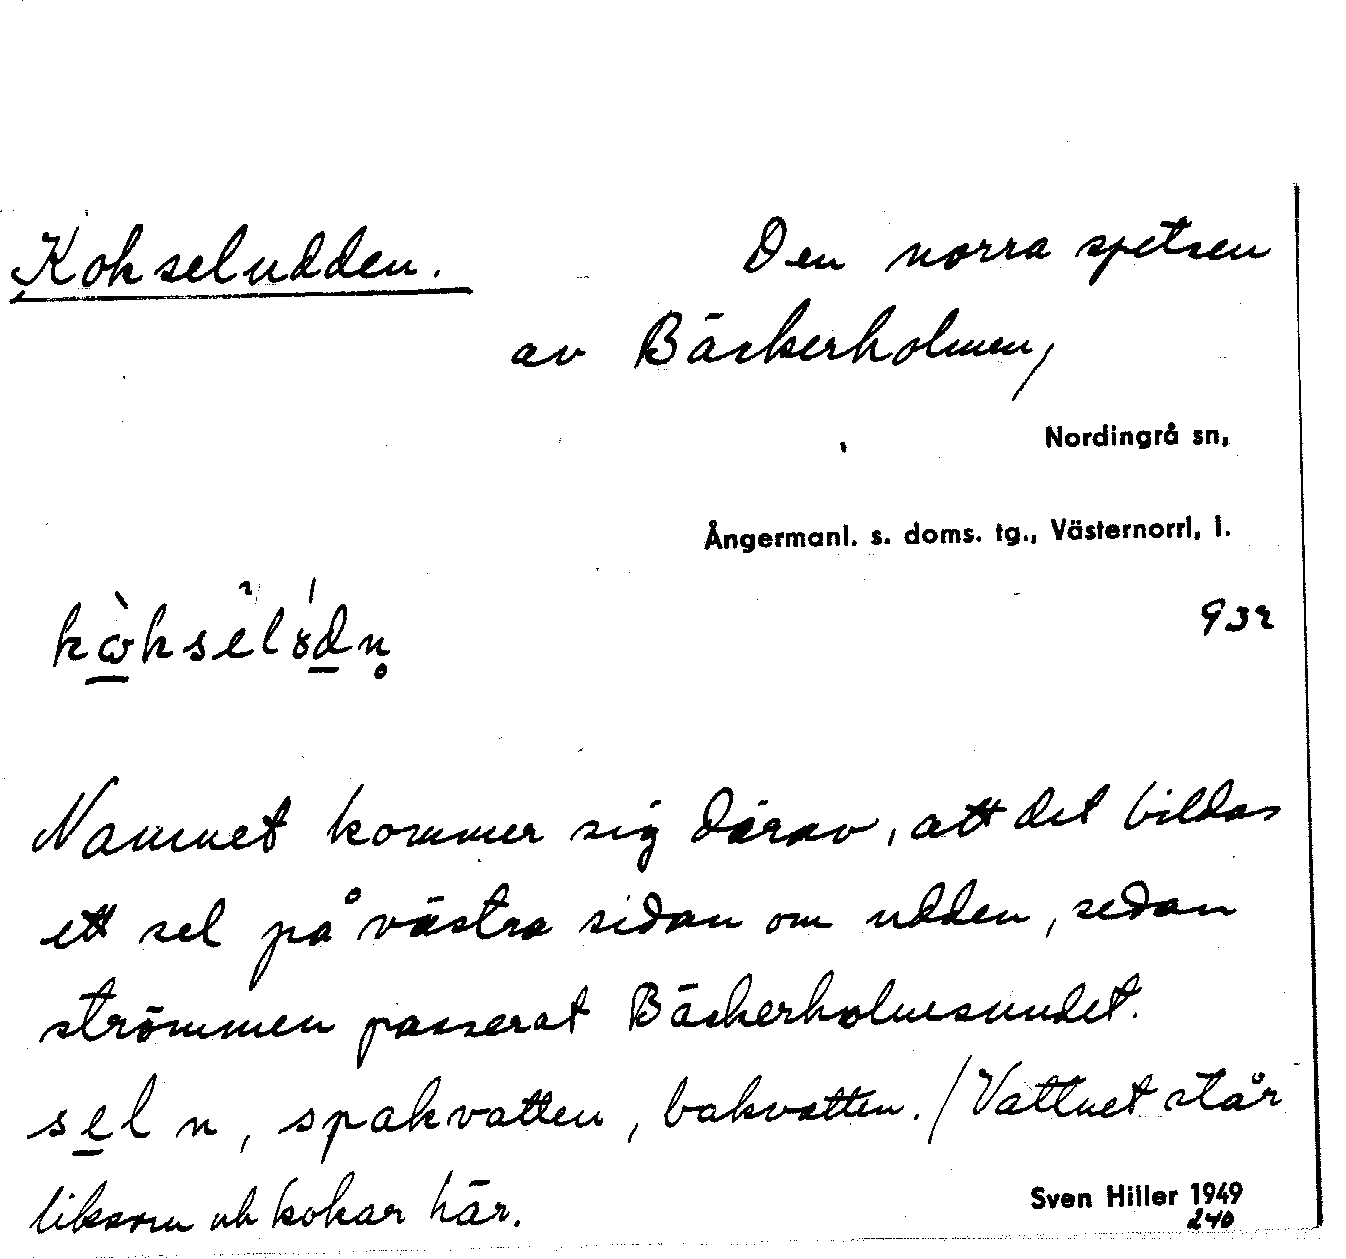 Kokseludden. Den norra spetsen
av Bäckerholmen,
Nordingrå sn,
Ångermanl. s. doms. tg., Västernorrl, l.
932
Namnet kommer sig därav, att det bildas
ett sel på västra sidan om udden, sedan
strömmen passerat Bäckerholmsundet.
sel n, spakvatten, bakvatten. / Vattnet står
liksom och kokar här.
Sven Hiller 1949
240